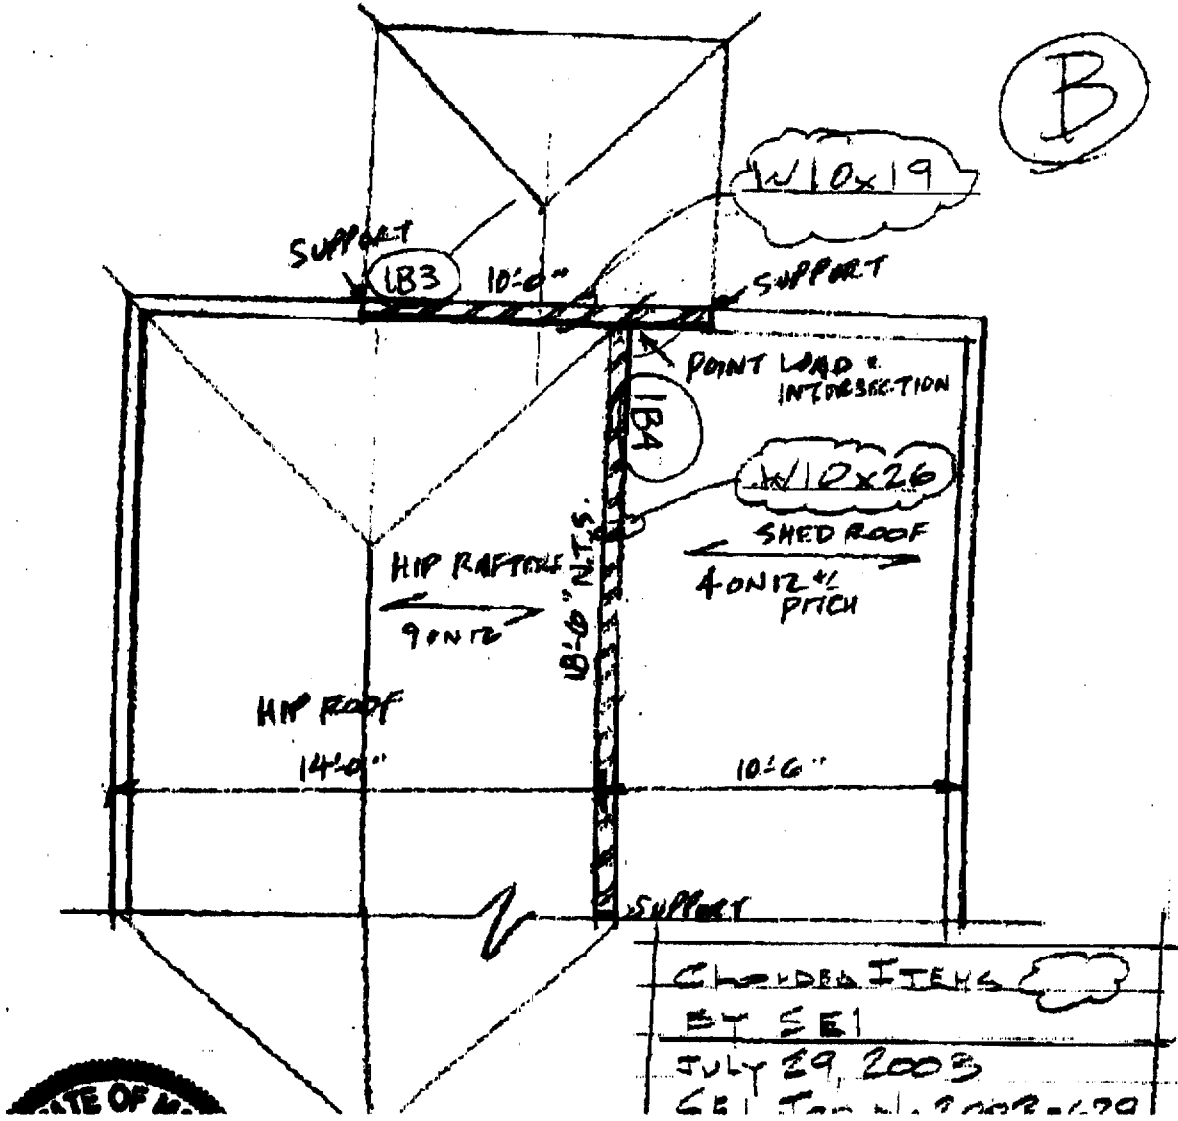 B
W10x19
SUPPORT
1B3
10'-0"
SUPPORT
POINT LOAD @
INTERSECTION
1B4
W10x26
SHED ROOF
4 ON 12 +/-
PITCH
HIP RAFTERS
9 ON 12
18'-6" N.T.S.
HIP ROOF
14'-0"
10'-6"
SUPPORT
CLOUDED ITEMS
BY SEI
JULY 29, 2003
SEI JOB No. 2003-
ATE OF MA